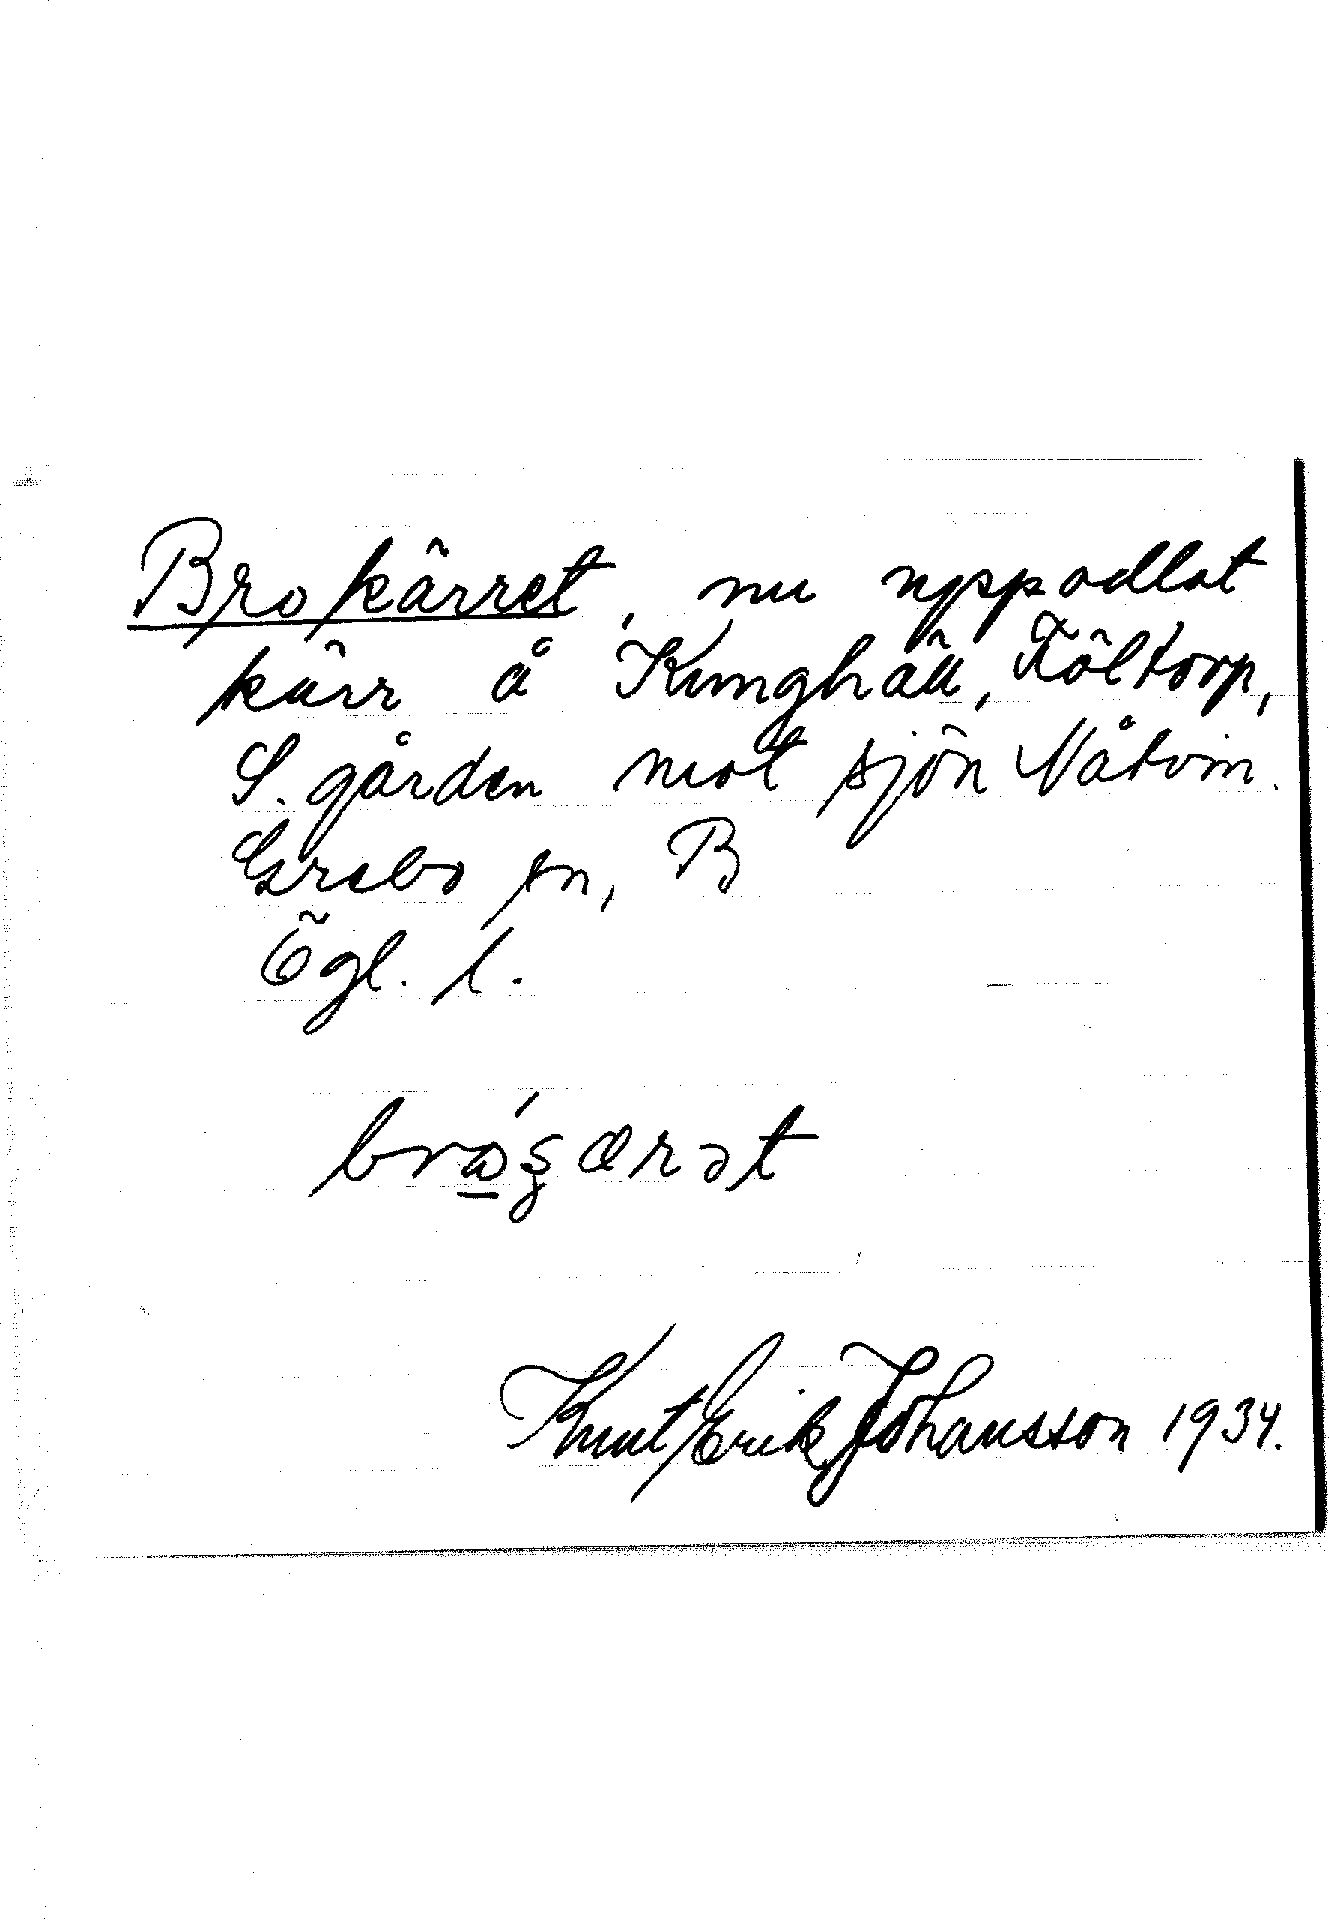 Brokärret, nu uppodlat
kärr å Kunghäll, Föltorp,
S. gården mot sjön Nåtvin.
Grebo sn, B
Ögl. l.
Knut Erik Johansson 1934.